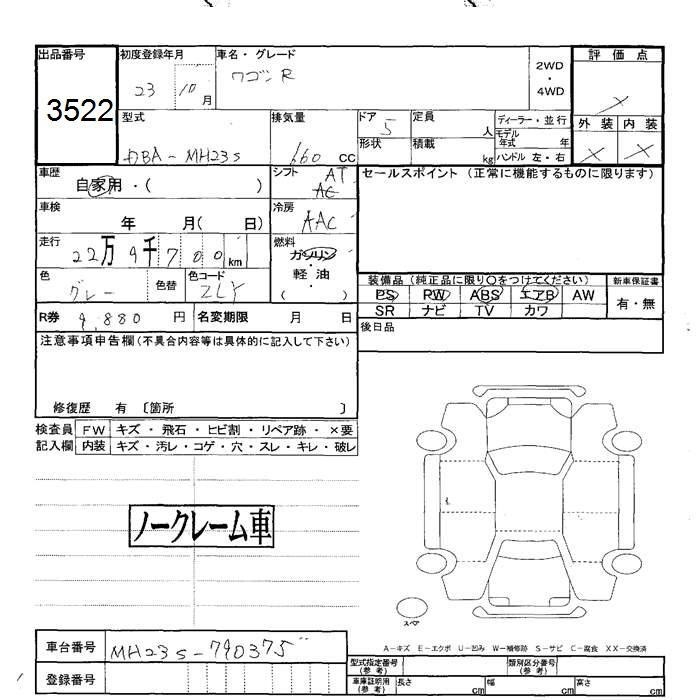 出品番号
3522
初度登録年月
23 10月
車名・グレード
ワゴンR
2WD
・
4WD
評価点
外装 内装
型式
DBA-MH23S
排気量
660 cc
ドア
5
形状
定員
人
積載
kg
ディーラー・並行
モデル年式 年
ハンドル 左・右
車歴
自家用・( )
シフト
AT
冷房
AAC
セールスポイント (正常に機能するものに限ります)
車検
年 月( 日)
走行
22万9千700km
燃料
ガソリン
・
軽・油
( )
色
グレー
色替
色コード
ZLY
装備品 (純正品に限り○をつけてください)
PS PW ABS エアB AW
SR ナビ TV カワ
新車保証書
有・無
R券 9,880 円
名変期限 月 日
後日品
注意事項申告欄(不具合内容等は具体的に記入して下さい)
修復歴 有 〔箇所 〕
検査員記入欄
FW キズ・飛石・ヒビ割・リペア跡・×要
内装 キズ・汚レ・コゲ・穴・スレ・キレ・破レ
ノークレーム車
スペア
A-キズ E-エクボ U-凹み W-補修跡 S-サビ C-腐食 XX-交換済
車台番号
MH23S-790375
登録番号
型式指定番号(参考)
類別区分番号(参考)
車庫証明用(参考)
長さ cm
幅 cm
高さ cm